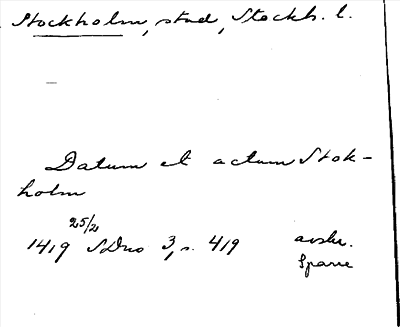 Stockholm, stad, Stockh. l.
Datum et actum Stok-
holm
25/2
1419 SDns 3, s. 419 avskr.
Sparre